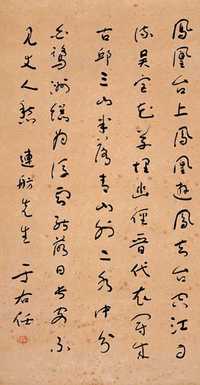 鳳凰台上鳳凰遊鳳去台空江自
流吳宮花草埋幽徑晉代衣冠成
古邱三山半落青天外二水中分
白鷺洲總為浮雲能蔽日長安不
見使人愁 連舫先生 于右任